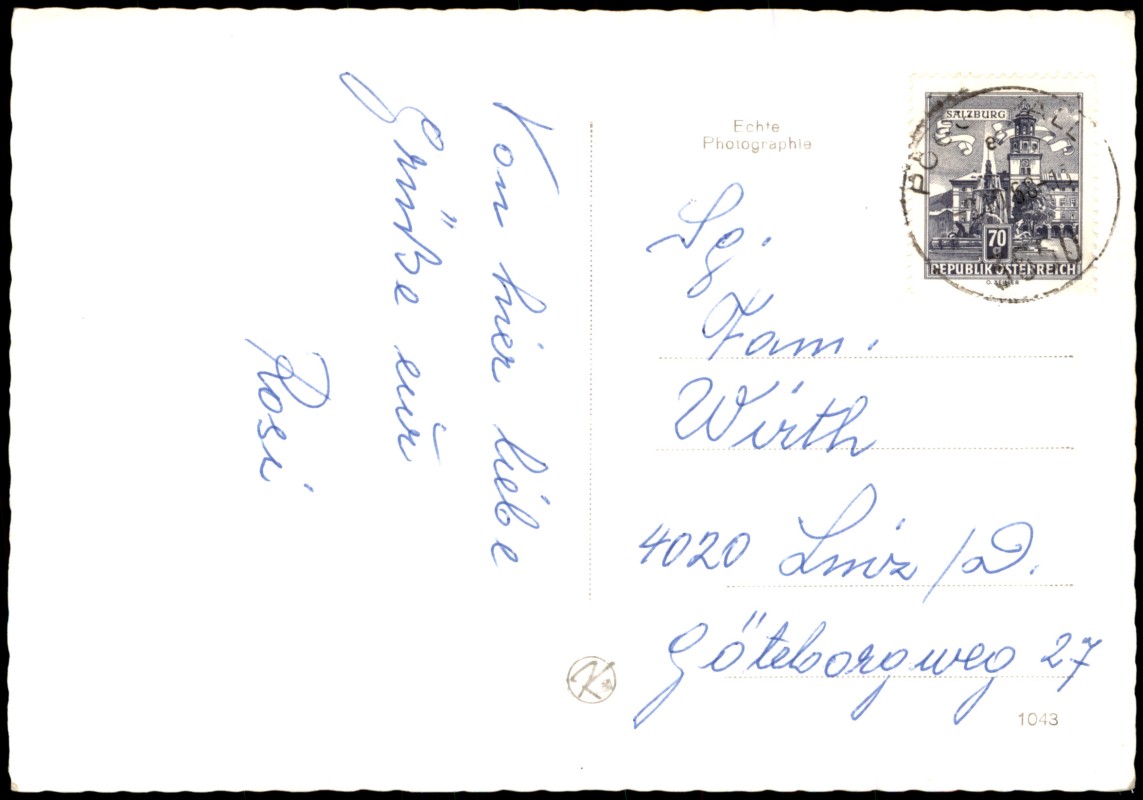 Von hier liebe
Grüße eur
Rosi
Echte
Photographie
SALZBURG
70
g
REPUBLIK ÖSTERREICH
Sg.
Fam.
Wirth
4020 Linz/D.
Göteborgweg 27
K
1043